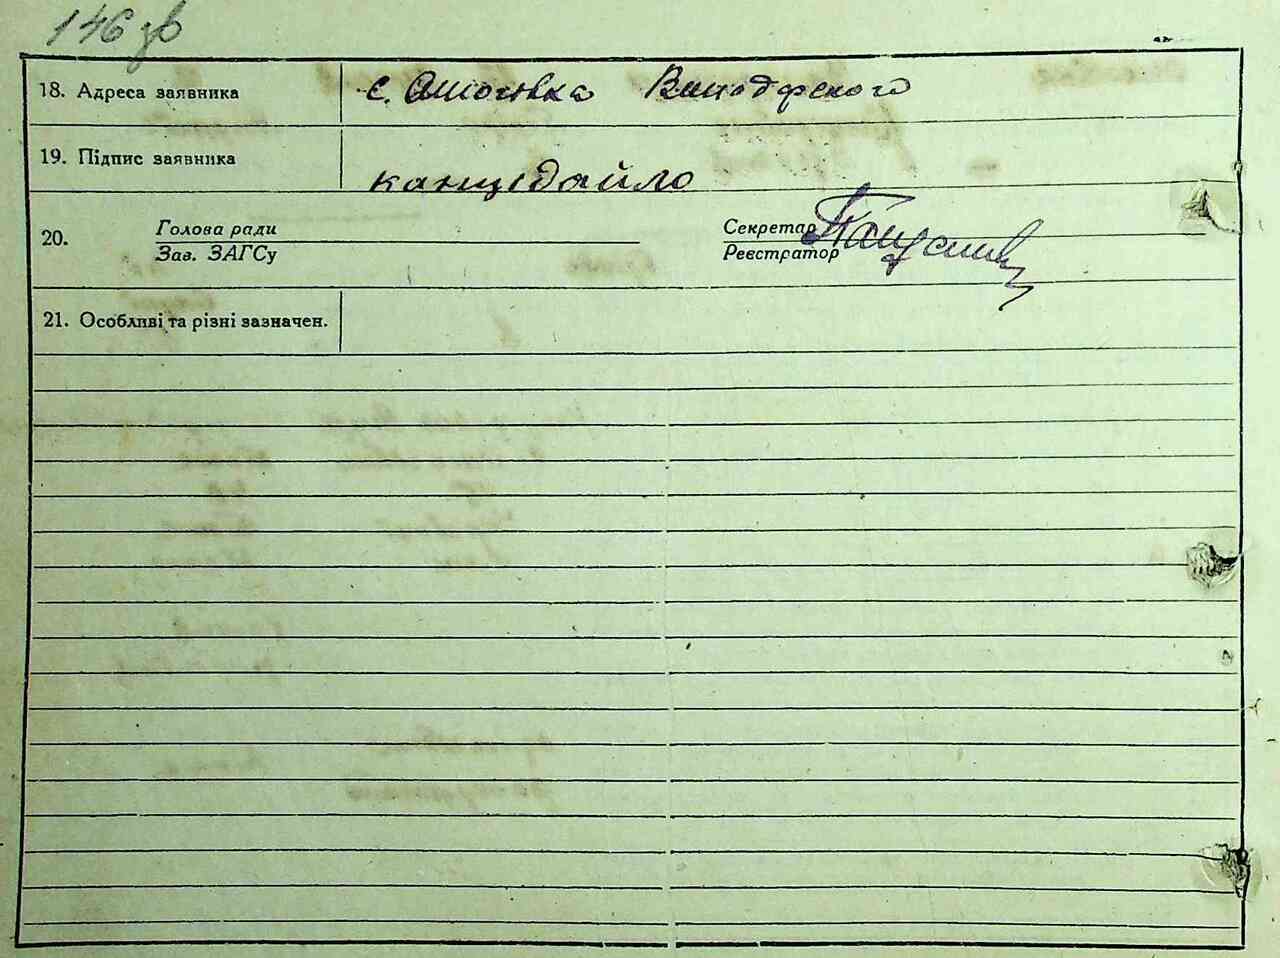 146 зв
18. Адреса заявника с. Антоновка
19. Підпис заявника канцідайло
20. Голова ради Секретар
Зав. ЗАГСу Реєстратор
21. Особливі та різні зазначен.